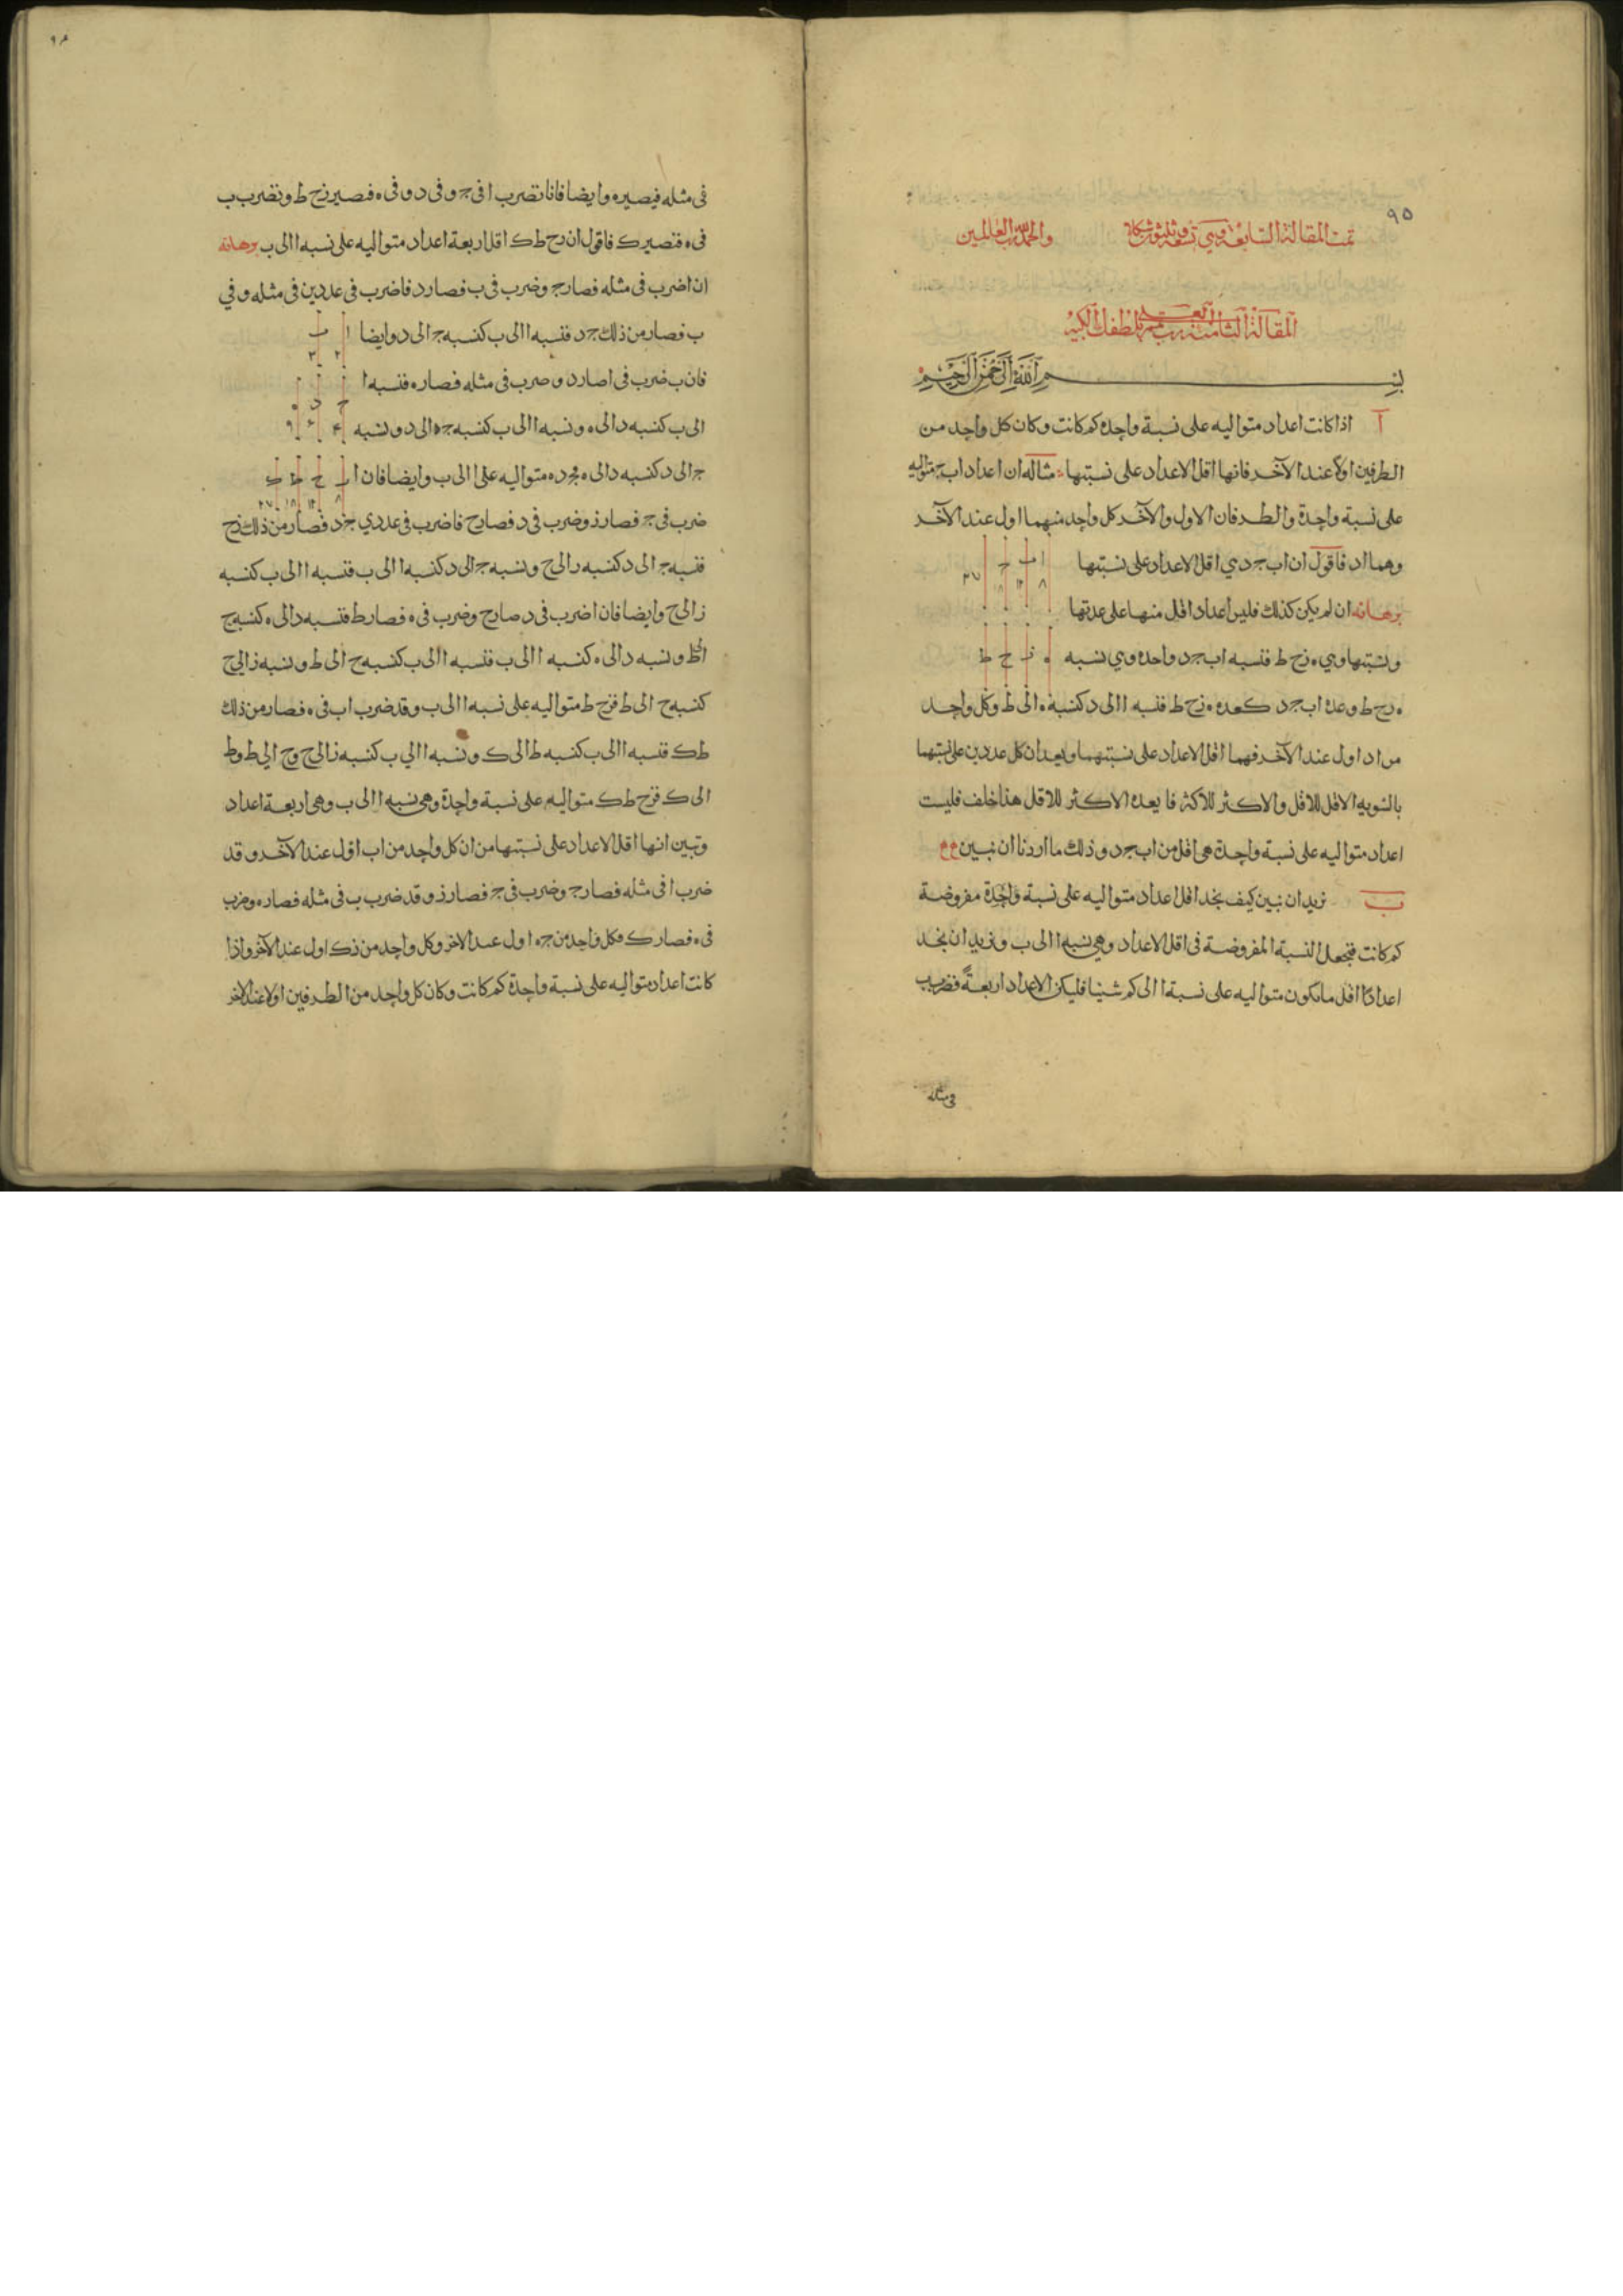 ٩٥
تمت المقالة السابعة وهي تسعة وثلثون شكلا والحمد لله رب العالمين
المقالة الثامنة رب تمم بلطفك الكبير
بسم الله الرحمن الرحيم
آ اذا كانت اعداد متواليه على نسبة واحدة كم كانت وكان كل واحد من
الطرفين اولا عند الآخر فانها اقل الاعداد على نسبتها مثاله ان اعداد اب ج متواليه
على نسبة واحدة والطرفان الاول والآخر كل واحد منهما اول عند الآخر
وهما اد فاقول ان اب ج د هي اقل الاعداد على نسبتها
ا ب ج
٨ ١٢ ١٨ ٢٧
برهانه ان لم يكن كذلك فليس اعداد اقل منها على عدتها
ونسبتها وهي ه زح ط فنسبه اب ج د واحده وهي نسبه
ه ز ح ط
ه زح ط وعدة اب ج د كعده ه زح ط فنسبه ا الى د كنسبة ه الى ط وكل واحد
من اد اول عند الآخر فهما اقل الاعداد على نسبتهما ويعدان كل عددين على نسبتهما
بالسويه الاقل للاقل والاكثر للاكثر فا يعد ه الاكثر للاقل هذا خلف فليست
اعداد متواليه على نسبة واحدة هي اقل من اب ج د وذلك ما اردنا ان نبين
ب نريد ان نبين كيف نجد اقل اعداد متواليه على نسبة واحدة مفروضة
كم كانت فنجعل النسبة المفروضة في اقل الاعداد وهي نسبه ا الى ب ونريد ان نجد
اعدادا اقل ما يكون متواليه على نسبة ا الى كم شينا فليكن الاعداد اربعةً فنضرب
في مثله
في مثله فيصير ه وايضا فانا نضرب ا في ج وفي د وفي ه فصير زح ط ونضرب ب
في ه فتصير ك فاقول ان زح ط ك اقل اربعة اعداد متواليه على نسبه ا الى ب برهانه
ان ا ضرب في مثله فصار ج وضرب في ب فصار د فا ضرب في عددين في مثله وفي
ب فصار من ذلك ج د فنسبه ا الى ب كنسبه ج الى د وايضا
ا ب
٢ ٣
فان ب ضرب في ا صار د وضرب في مثله فصار ه فنسبه ا
ج د ه
الى ب كنسبه د الى ه ونسبه ا الى ب كنسبه ج ه الى د ونسبه
٤ ٦ ٩
ج الى د كنسبه د الى ه فج د ه متواليه على ا الى ب وايضا فان ا
ز ح ط ك
٨ ١٢ ١٨ ٢٧
ضرب في ج فصار ز وضرب في د فصار ح فا ضرب في عددي ج د فصار من ذلك زح
فنسبه ج الى د كنسبه ز الى ح ونسبه ج الى د كنسبه ا الى ب فنسبه ا الى ب كنسبه
ز الى ح وايضا فان ا ضرب في د صار ح وضرب في ه فصار ط فنسبه د الى ه كنسبه ح
الى ط ونسبه د الى ه كنسبه ا الى ب فنسبه ا الى ب كنسبه ح الى ط ونسبه ز الى ح
كنسبه ح الى ط فزح ط متواليه على نسبه ا الى ب وقد ضرب اب في ه فصار من ذلك
ط ك فنسبه ا الى ب كنسبه ط الى ك ونسبه ا الي ب كنسبه ز الى ح وح الي ط وط
الى ك فزح ط ك متواليه على نسبة واحدة وهي نسبه ا الى ب وهي اربعة اعداد
وتبين انها اقل الاعداد على نسبتها من ان كل واحد من اب اول عند الآخر وقد
ضرب ا في مثله فصار ج وضرب في ج فصار ز وقد ضرب ب في مثله فصار ه وضرب
في ه فصار ك فكل واحد من ج ه اول عند الاخر وكل واحد من ز ك اول عند الآخر واذا
كانت اعداد متواليه على نسبة واحدة كم كانت وكان كل واحد من الطرفين اولا عند الاخر